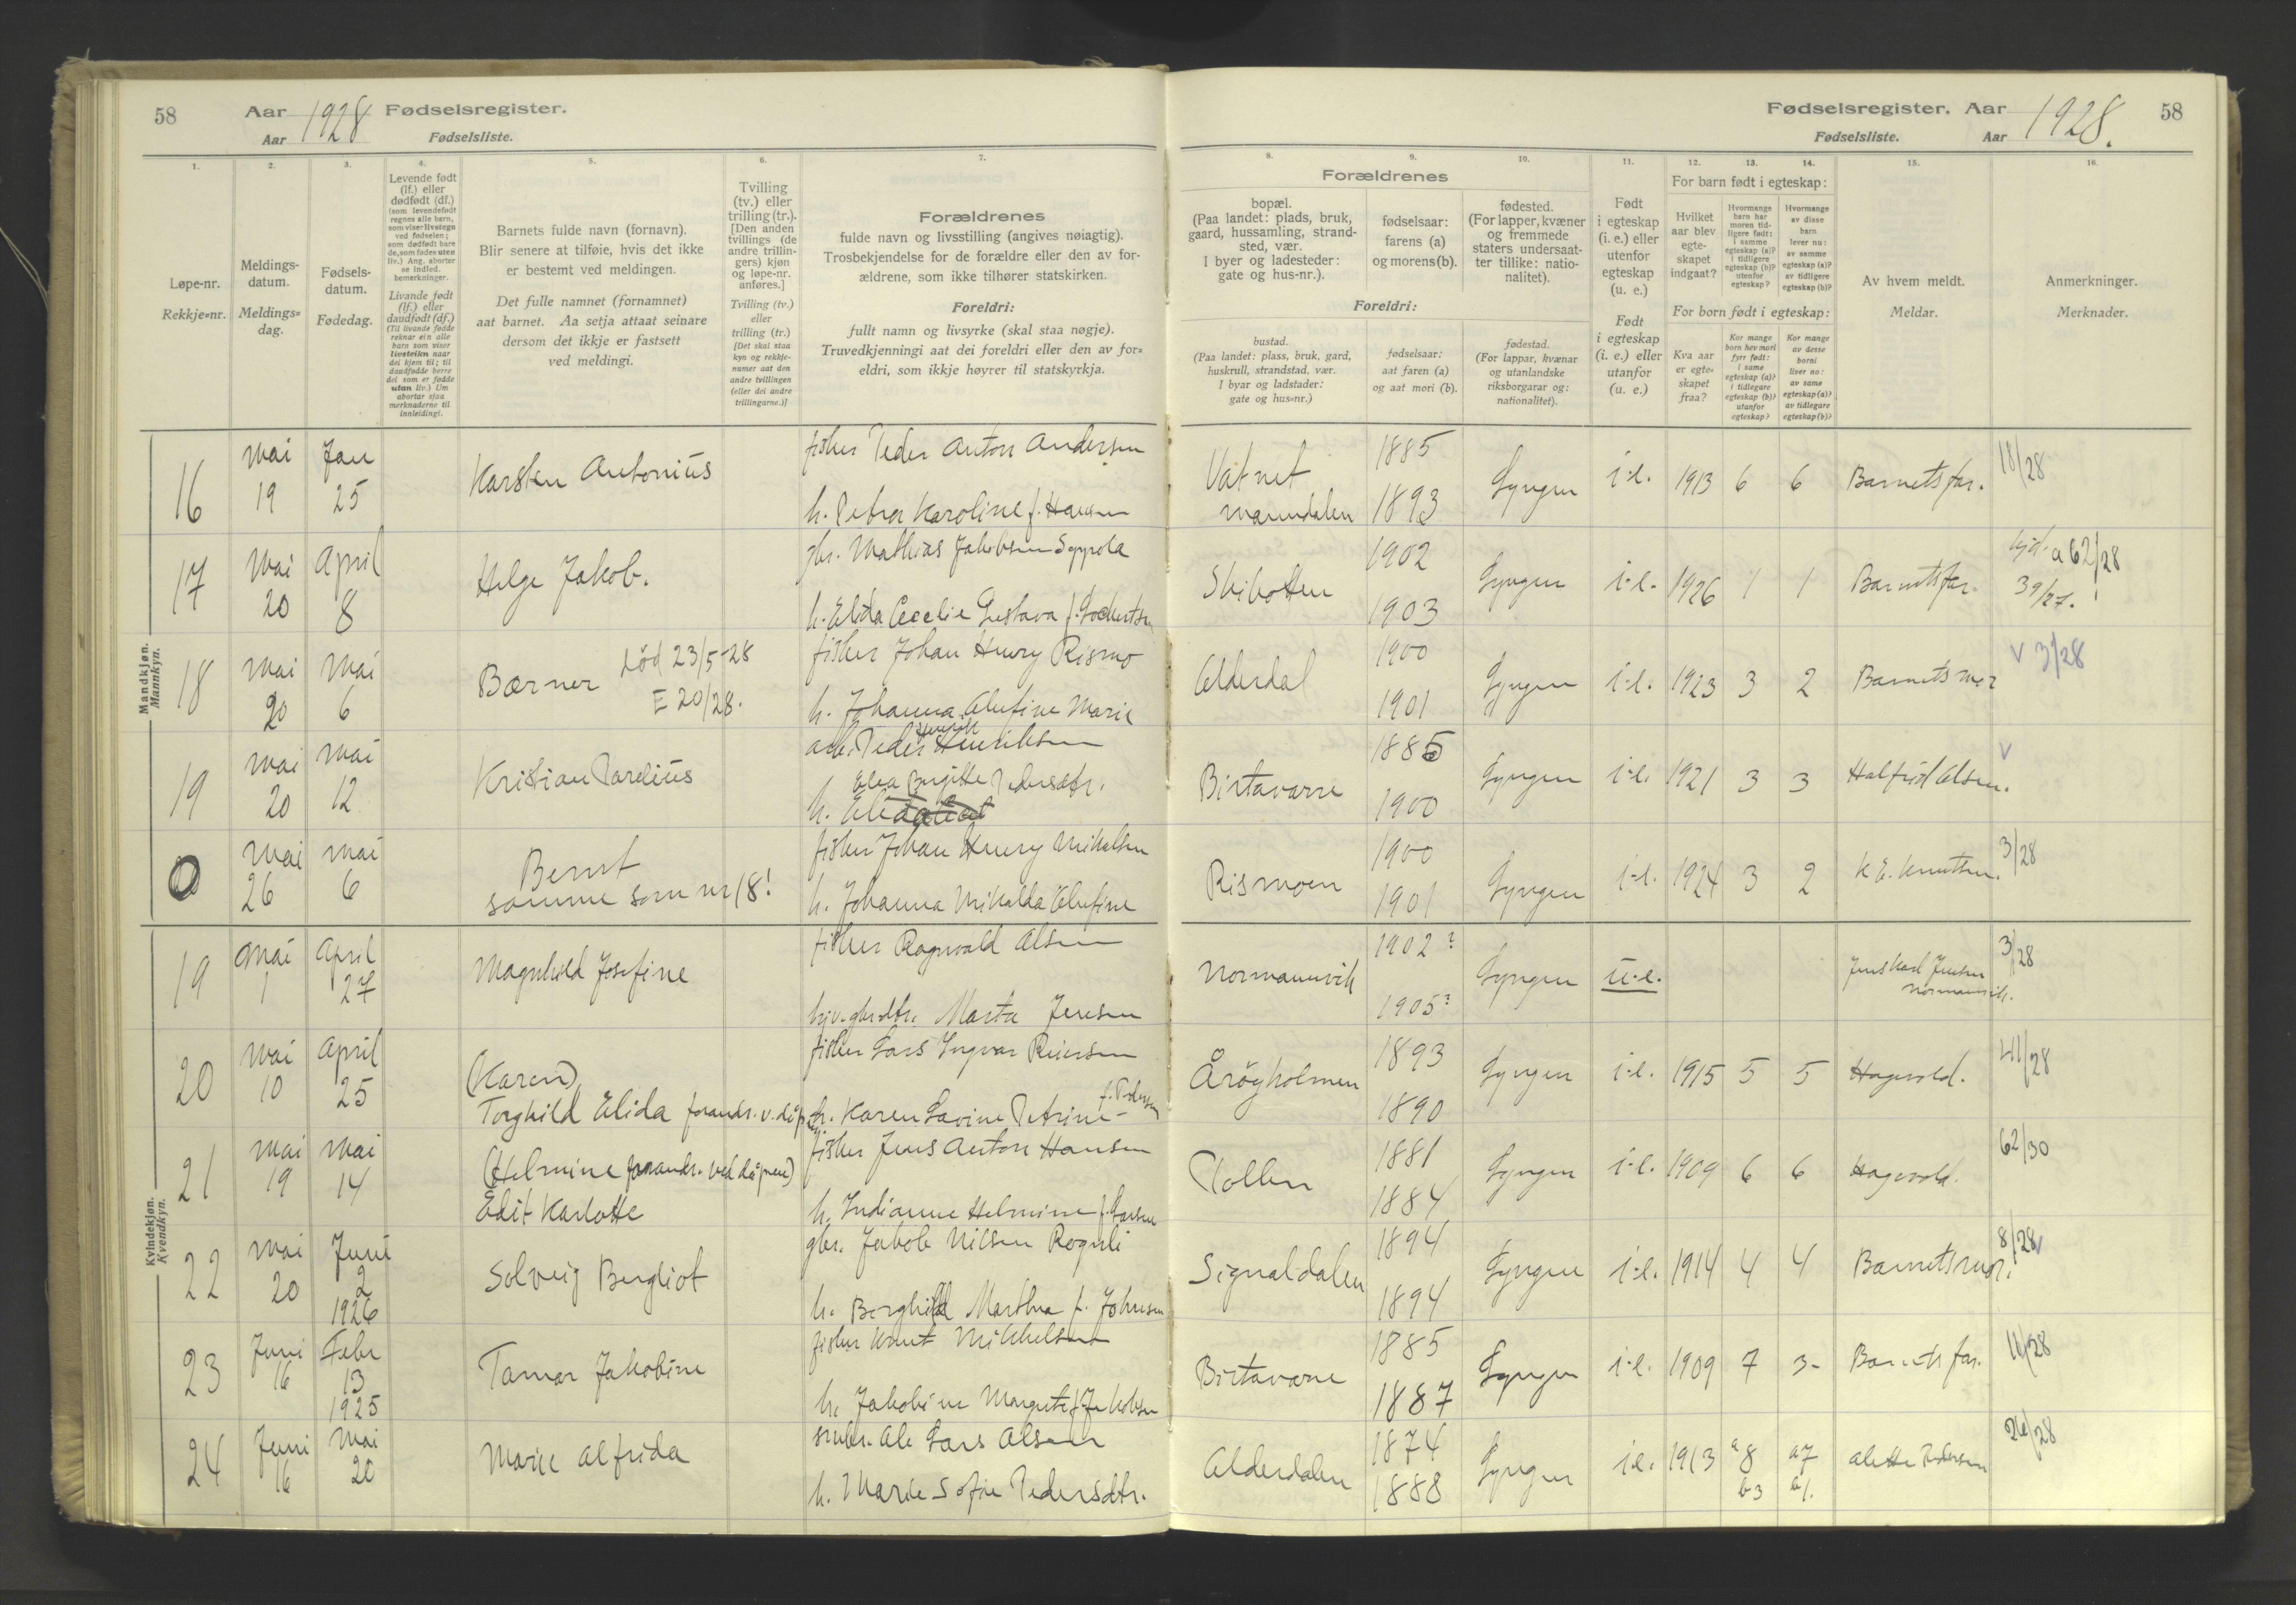 58
Aar 1928 Fødselsregister.
Aar Fødselsliste.
1.
2.
3.
4.
5.
6.
7.
Løpe-nr.
Rekkje=nr.
Meldings-
datum.
Meldings=
dag.
Fødsels-
datum.
Fødedag.
Levende født
(lf.) eller
dødfødt (df.)
(som levendefødt
regnes alle barn,
som viser livstegn
ved fødselen;
som dødfødt bare
de, som fødes uten
liv.) Ang. aborter
se indled.
bemerkninger.
Livande født
(lf.) eller
daudfødt (df.)
(Til livande fødde
reknar ein alle
barn som viser
livsteikn naar
dei kjem til; til
daudfødde berre
dei som er fødde
utan liv.) Um
abortar sjaa
merknaderne til
innleidingi.
Barnets fulde navn (fornavn).
Blir senere at tilføie, hvis det ikke
er bestemt ved meldingen.
Det fulle namnet (fornamnet)
aat barnet. Aa setja attaat seinare
dersom det ikkje er fastsett
ved meldingi.
Tvilling
(tv.) eller
trilling (tr.).
[Den anden
tvillings (de
andre trillin-
gers) kjøn
og løpe-nr.
anføres.]
Tvilling (tv.)
eller
trilling (tr.)
[Det skal staa
kyn og rekkje-
numer aat den
andre tvillingen
(eller dei andre
trillingarne.)]
Forældrenes
fulde navn og livsstilling (angives nøiagtig).
Trosbekjendelse for de forældre eller den av for-
ældrene, som ikke tilhører statskirken.
Foreldri:
fullt namn og livsyrke (skal staa nøgje).
Truvedkjenningi aat dei foreldri eller den av for=
eldri, som ikkje høyrer til statskyrkja.
Mandkjøn.
Mannkyn.
16
Mai
19
Jan
25
Karsten Antonius
fisker Peder Anton Andersen
h. Petra Karoline f. Hansen
17
Mai
20
April
8
Helge Jakob.
gbr. Mathias Jakobsen Seppola
h. Elida Cecelie Gustava f.
18
Mai
20
Mai
6
Bærner
Död 23/5-28
E 20/28.
fisker Johan Henry Rismo
h. Johanna Olufine Marie
19
Mai
20
Mai
12
Kristian Pareliüs
arb. Peder Henrik Henriksen
Elea Birgitte Pedersdtr.
h.
0
Mai
26
Mai
6
Bernt
samme som nr 18!
fisker Johan Henry Mikalsen
h. Johanna Mikalda Olufine
Kvindekjøn.
Kvendkyn.
19
Mai
1
April
27
Magnhild Josefine
fisker Ragnvald Olsen
Marta Jensen
20
Mai
10
April
25
(Karen)
Torghild Elida forandr. v. dåpen
fisker Lars Ingvar Reiersen
f. Pedersen
h. Karen Lavine Petrine-
21
Mai
19
Mai
14
(Helmine forandr. ved dåpen)
Edit Karlotte
fisker Jens Anton Hansen
h. Indianne Helmine f. Larsen
22
Mai
20
Juni
2
1926
Solveig Bergliot
gbr. Jakob Nilsen Rognli
h. Borghild Marthea f. Johnsen
23
Juni
16
Febr
13
1925
Tamar Jakobine
fisker Knut Mikkelsen
h. Jakobine Margrete f. Jakobsen
24
Juni
16
Mai
20
Marie Alfrida
Ole Lars Olsen
h. Marie Sofie Pedersdtr.
Fødselsregister. Aar 1928. 58
Fødselsliste. Aar
8.
9.
10.
11.
12.
13.
14.
15.
16.
Forældrenes
bopæl.
(Paa landet: plads, bruk,
gaard, hussamling, strand-
sted, vær.
I byer og ladesteder:
gate og hus-nr.).
fødselsaar:
farens (a)
og morens (b).
fødested.
(For lapper, kvæner
og fremmede
staters undersaat-
ter tillike: natio-
nalitet).
Foreldri:
bustad.
(Paa landet: plass, bruk, gard,
huskrull, strandstad, vær.
I byar og ladstader:
gate og hus=nr.)
fødselsaar:
aat faren (a)
og aat mori (b).
fødestad.
(For lappar, kvænar
og utanlandske
riksborgarar og:
nationalitet).
Født
i egteskap
(i. e.) eller
utenfor
egteskap
(u. e.)
Født
i egteskap
(i. e.) eller
utanfor
(u. e.)
For barn født i egteskap:
Hvilket
aar blev
egte-
skapet
indgaat?
Hvormange
barn har
moren tid-
ligere født:
i samme
egteskap (a)?
i tidligere
egteskap (b)?
utenfor
egteskap?
Hvormange
av disse
barn
lever nu:
av samme
egteskap (a)?
av tidligere
egteskap (b)?
For born født i egteskap:
Kva aar
er egte-
skapet
fraa?
Kor mange
born hev mori
fyrr født:
i same
egteskap (a)?
i tidlegare
egteskap (b)?
utanfor
egteskap?
Kor mange
av desse
borni
liver no:
av same
egteskap (a)?
av tidlegare
egteskap (b)?
Av hvem meldt.
Meldar.
Anmerkninger.
Merknader.
Vatnet
Manndalen
1885
1893
Lyngen i.e. 1913 6 6 Barnets far. 18/28
Skibotten
1902
1903
Lyngen i.e. 1926 1 1 Barnets far.
a 62/28
39/27.
Olderdal
1900
1901
Lyngen i.e. 1923 3 2 Barnets mor
V 3/28
Birtavarre
1885
1900
Lyngen i.e. 1921 3 3 Halfrid Olsen.
V
Rismoen
1900
1901
Lyngen i.e. 1924 3 2 K E. Knutsen.
3/28
Normannvik
1902?
1905?
Lyngen u.e.
Jens Karl Jensen
Normannvik.
3/28
Årøyholmen
1893
1890
Lyngen i.e. 1915 5 5 Hagevold.
41/28
Pollen
1881
1884
Lyngen i.e. 1909 6 6 Hagevold.
62/30
Signaldalen
1894
1894
Lyngen i.e. 1914 4 4 Barnets mor.
8/28 V
Birtavarre
1885
1887
Lyngen i.e. 1909 7 3- Barnets far.
11/28
Olderdalen
1874
1888
Lyngen i.e. 1913 a 8 a 7
b 3 b 1.
Alette Pedersen
26/28